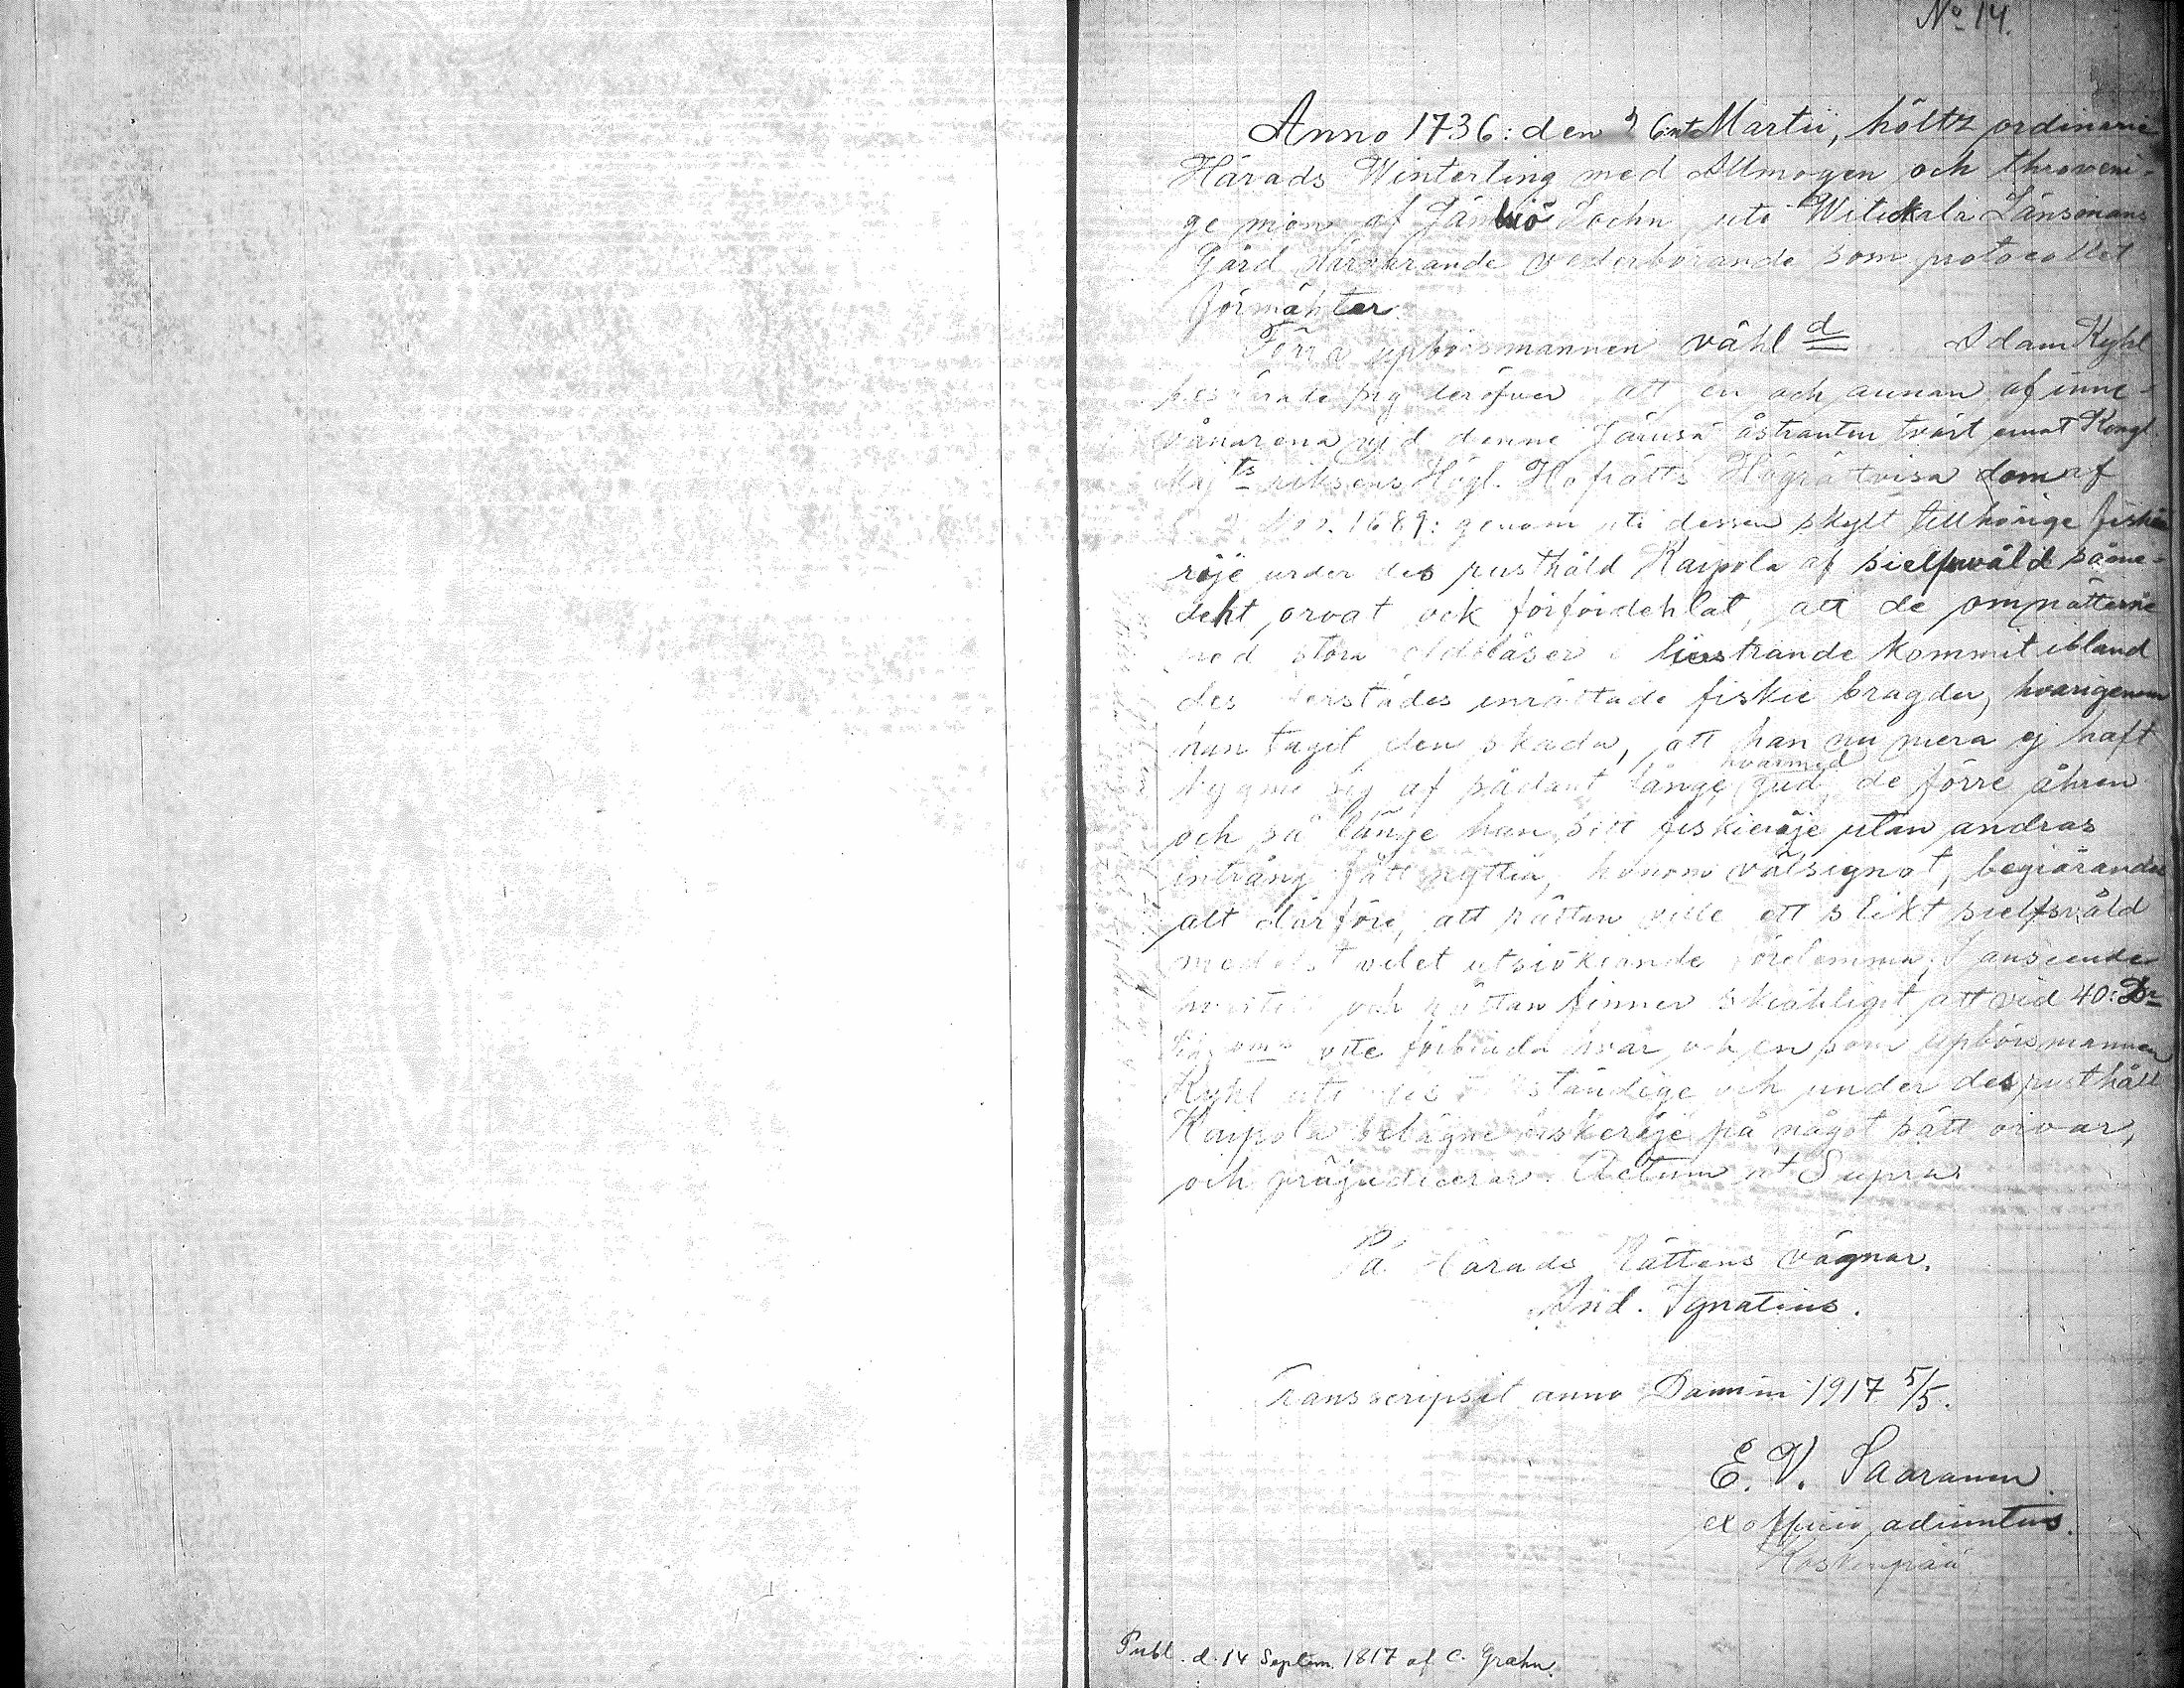 No 14.
Anno 1736: den Martii, höltz ordinarie
Härads Winterting med Allmogen och
ge män af Jämsiö Sochn, uti Witikkala Länsmans
Gård närvarande vederbörande som protocollet
förmähler
Förra upbörsmannen vähl d Adam Kyhl
besvärade sig deröfver att en och annan af inne-
vånarena vid denne Jämsä åstranten tvärt emot Kongl
Maj ts riksens Högl. Hofrätts Högrätvisa dom af
Nov. 1689: genom uti dessen skylt tillhörige
röje under des rusthåld Kaipola af sielfsvåld
deht orvat ock förfördehlat, att de omnätterne
med stora kommit ibland
des derstädes inrättade fiskie bragder, hvarigenom
han tagit den skada, att han nu mera ej haft
hygna sig af sådant fånge, hvarmed gud, de förre åhren
och så länge han sitt fiskieröje utan andras
intrång fått nyttia, honom välsignat, begiärandes
alt därföre, att rätten ville ett slikt sielfsvåld
medelst vdet utsiökiande förekomma, I anseende
hvartill och rätten finner skiähligit att vid 40: Dr
vite förbiuda hvar och en som upbörsmannen
Kyhl uti des ständige och under des rusthåll
Kaipola belägne fiskeröje på något sätt orvar,
och präjudicerar. Actum ut Supra.
På Härads Rättens vägnar.
And. Ignatius.
Transscripsit anno Domini 1917 5/5.
E. V. Saaranen
ex officio adiuntus.
Koskenpää
Publ. d. 14 Septem. 1817 af C. Grahn.